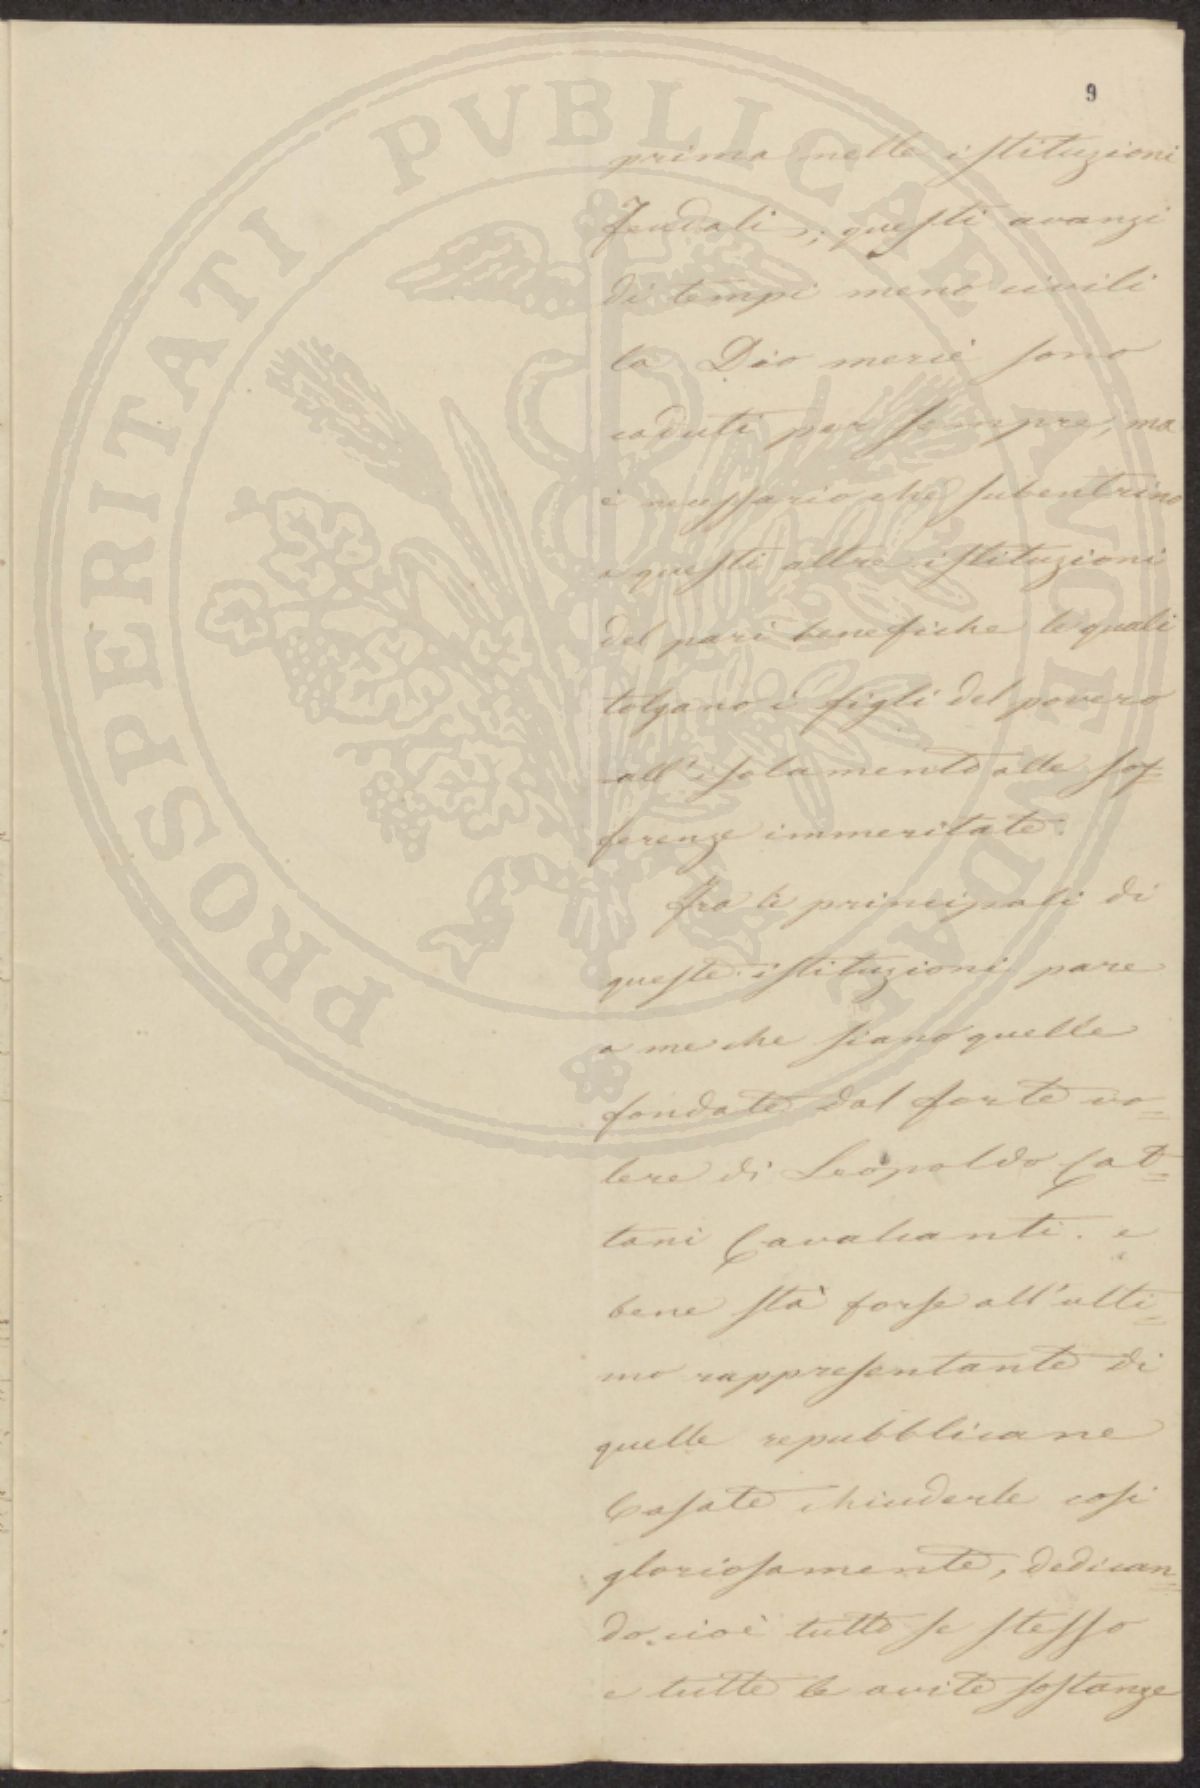 PROSPERITATI PVBLICAE AVGENDAE
9
prima nelle istituzioni
feudali; questi avanzi
di tempi meno civili
la Dio mercè sono
caduti per sempre, ma
è necessario che subentrino
a questi altre istituzioni
del pari benefiche le quali
tolgano i figli del povero
all'isolamento alle sof-
ferenze immeritate.
Fra le principali di
queste istituzioni pare
a me che siano quelle
fondate dal forte vo=
lere di Leopoldo Cat=
tani Cavalcanti. e
bene stà forse all'ulti=
mo rappresentante di
quelle repubblicane
Casate chiuderle così
gloriosamente, dedican=
do cioè tutto se stesso
e tutte le avite sostanze